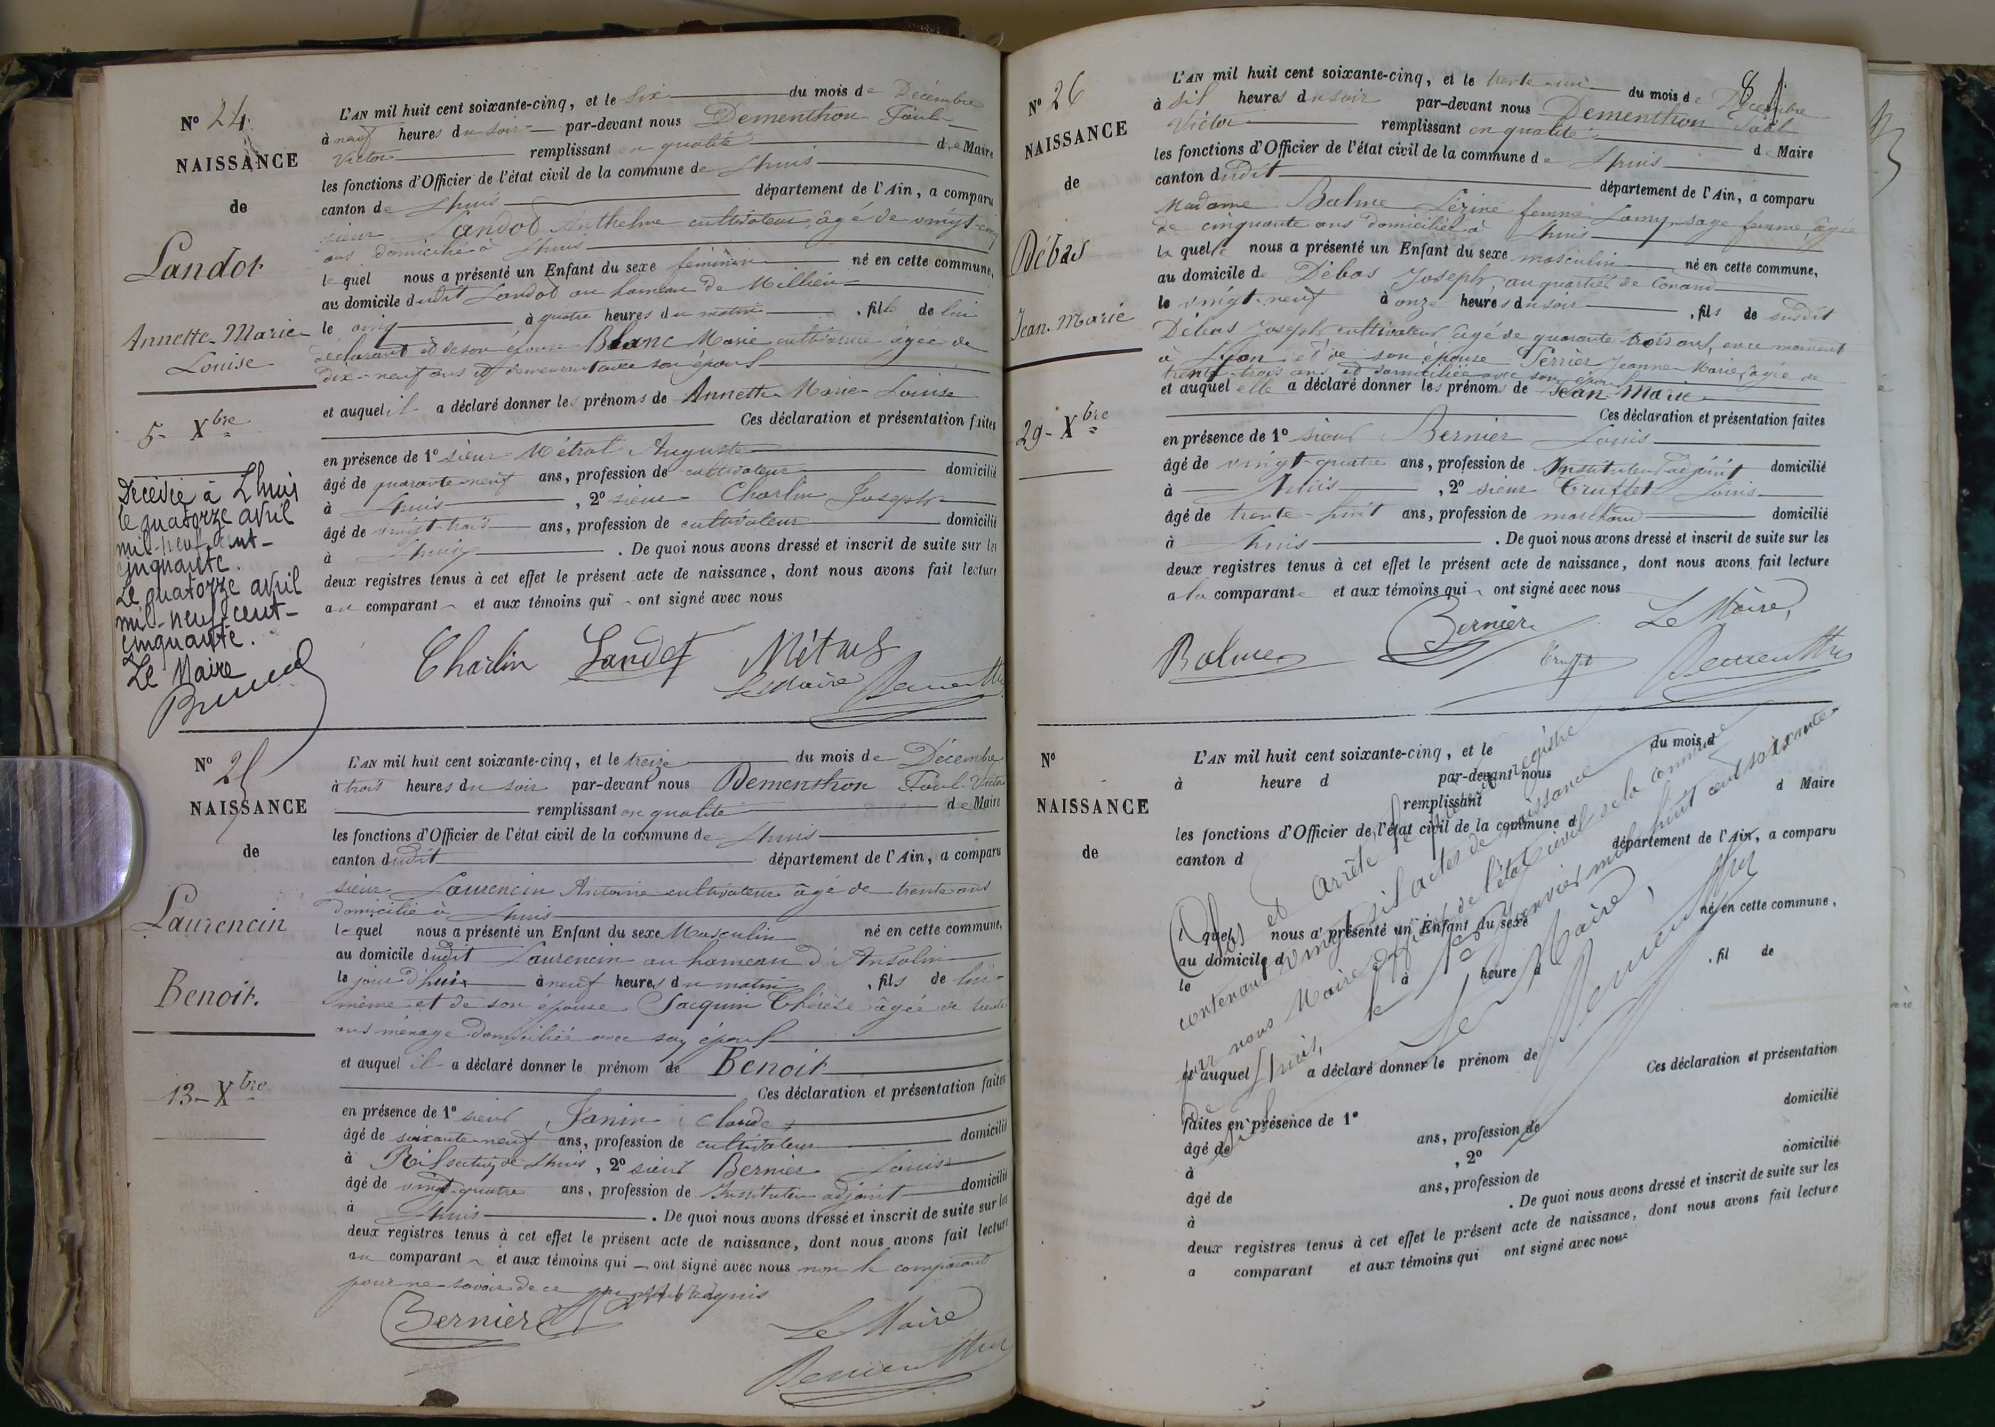 N° 24
NAISSANCE
de
Landot
Annette-Marie-
Louise
5- Xbre
Décédée à Lhuis
le quatorze avril
mil-neuf cent-
cinquante.
Le quatorze avril
mil-neuf cent-
cinquante.
Le Maire
L'AN mil huit cent soixante-cinq, et le six du mois de Décembre
à neuf heures du soir par-devant nous Dementhon Paul-
Victor remplissant en qualité de Maire
les fonctions d'Officier de l'état civil de la commune de Lhuis
canton de Lhuis département de l'Ain, a comparu
sieur Landot Anthelme cultivateur, âgé de vingt-cinq
ans domicilié à Lhuis
lequel nous a présenté un Enfant du sexe féminin né en cette commune,
au domicile dudit Landot au hameau de Millieu
le cinq à quatre heures du matin, fille de lui
déclarant et de son épouse Blanc Marie cultivatrice âgée de
dix-neuf ans et demeurant avec son époux
et auquel il a déclaré donner les prénoms de Annette-Marie-Louise
Ces déclaration et présentation faites
en présence de 1° sieur Métrat Auguste
âgé de quarante-neuf ans, profession de cultivateur domicilié
à Lhuis, 2° sieur Charlin Joseph
âgé de vingt-trois ans, profession de cultivateur domicilié
à Lhuis. De quoi nous avons dressé et inscrit de suite sur les
deux registres tenus à cet effet le présent acte de naissance, dont nous avons fait lecture
au comparant et aux témoins qui ont signé avec nous
Charlin Landot Métras
Le Maire Dementhon
N° 25
NAISSANCE
de
Laurencin
Benoit.
13- Xbre
L'AN mil huit cent soixante-cinq, et le treize du mois de Décembre
à trois heures du soir par-devant nous Dementhon Paul-Victor
remplissant en qualité de Maire
les fonctions d'Officier de l'état civil de la commune de Lhuis
canton dudit département de l'Ain, a comparu
sieur Laurencin Antoine cultivateur âgé de trente ans
domicilié à Lhuis
lequel nous a présenté un Enfant du sexe Masculin né en cette commune,
au domicile dudit Laurencin au hameau d'Ansolin
le jour d'hui à neuf heures du matin, fils de lui-
même et de son épouse Jacquin Thérèse âgée de trente
ans ménage domiciliée avec son époux
et auquel il a déclaré donner le prénom de Benoit
Ces déclaration et présentation faites
en présence de 1° sieur Janin Claude
âgé de soixante-neuf ans, profession de cultivateur domicilié
à Lhuis, 2° sieur Bernier Louis
âgé de vingt-quatre ans, profession de Instituteur adjoint domicilié
à Lhuis. De quoi nous avons dressé et inscrit de suite sur les
deux registres tenus à cet effet le présent acte de naissance, dont nous avons fait lecture
au comparant et aux témoins qui ont signé avec nous non le comparant
pour ne savoir de ce requis
Bernier
Le Maire
Dementhon
8
N° 26
NAISSANCE
de
Débas
Jean-Marie
29- Xbre
L'AN mil huit cent soixante-cinq, et le trente-un du mois de Décembre
à six heures du soir par-devant nous Dementhon Paul
Victor remplissant en qualité de Maire
les fonctions d'Officier de l'état civil de la commune de Lhuis
canton dudit département de l'Ain, a comparu
Madame Balme Lézine femme Lamy sage femme, âgée
de cinquante ans domiciliée à Lhuis
laquelle nous a présenté un Enfant du sexe masculin né en cette commune,
au domicile de Débas Joseph, au quartier de Conand
le vingt-neuf à onze heures du soir, fils de susdit
Débas Joseph cultivateur âgé de quarante-trois ans, en ce moment
à Lyon et de son épouse Perrier Jeanne-Marie, âgée de
trente-trois ans et domiciliée avec son époux
et auquel elle a déclaré donner les prénoms de Jean-Marie
Ces déclaration et présentation faites
en présence de 1° sieur Bernier Louis
âgé de vingt-quatre ans, profession de Instituteur adjoint domicilié
à Lhuis, 2° sieur Truffet Louis
âgé de trente-huit ans, profession de marchand domicilié
à Lhuis. De quoi nous avons dressé et inscrit de suite sur les
deux registres tenus à cet effet le présent acte de naissance, dont nous avons fait lecture
a la comparante et aux témoins qui ont signé avec nous
Balme Bernier Le Maire,
Truffet Dementhon
N°
NAISSANCE
de
L'AN mil huit cent soixante-cinq, et le du mois d
à heure d par-devant nous
remplissant d Maire
les fonctions d'Officier de l'état civil de la commune d
canton d département de l'Ain, a comparu
l quel nous a présenté un Enfant du sexe né en cette commune,
au domicile d
le à heure d , fil de
et auquel a déclaré donner le prénom de
Ces déclaration et présentation
faites en présence de 1°
âgé de ans, profession de domicilié
à , 2°
âgé de ans, profession de domicilié
à . De quoi nous avons dressé et inscrit de suite sur les
deux registres tenus à cet effet le présent acte de naissance, dont nous avons fait lecture
a comparant et aux témoins qui ont signé avec nous
Clos et arrêté le présent registre
contenant vingt six actes de naissance
par nous Maire officier de l'état civil de la commune
de Lhuis, le 1er janvier mil huit cent soixante
six
Le Maire,
Dementhon